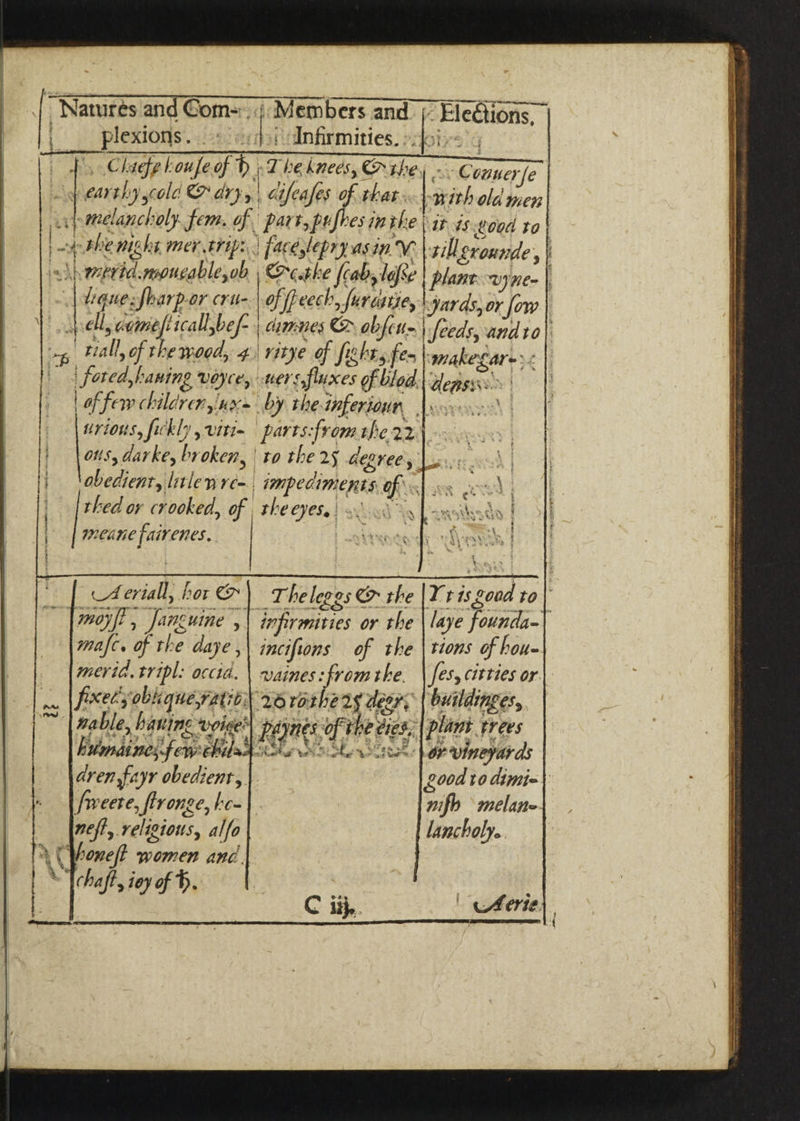 Natures and Com-
plexions.
Members and
Infirmities.
Elections.
Cheife house of ♄
earthy, cold & dry,
melancholy fem. of
the night mer. trip:
merid. moueable, ob
lique: sharp or cru-
ell, domesticall, bes-
tiall, of the wood, 4
foted, hauing voyce,
of few children, lux-
urious, sickly, viti-
ous, darke, broken,
obedient, litle w re-
thed or crooked, of
meane fairenes.
The knees, & the
diseases of that
part, pushes in the
face, lepry as in ♈
&c. the scab, losse
of speech, surditie,
dimnes & obscu-
ritye of sight, fe-
uers, fluxes of blod
by the inferiour
parts: from the 22
to the 25 degree,
impediments of
the eyes.
Conuerse
with old men
it is good to
till grounde,
plant vyne-
yards, or sow
seeds, and to
make gar-
dens.
♑
Aeriall, hot &
moyst, sanguine,
masc. of the daye,
merid. tripl: occid.
fixed, oblique, ratio
nable, hauing voice
humaine, few chil-
dren, fayr obedient,
sweete, stronge, ho-
nest, religious, also
honest women and
chast, ioy of ♄.
♒
The leggs & the
infirmities or the
incisions of the
vaines: from the.
20 to the 25 degr.
paynes of the eies.
Yt is good to
laye founda-
tions of hou-
ses, citties or
buildinges,
plant trees
or vineyards
good to dimi-
nish melan-
lancholy.
C iij.
Aerie